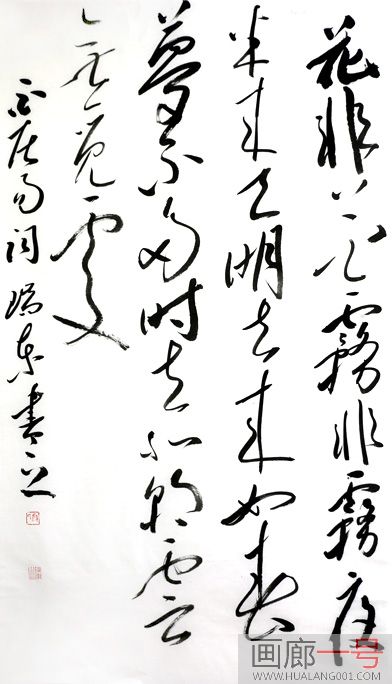 花非花霧非霧夜
半来天明去来如春
夢不多时去似朝雲
無覓處
白居易词 瑞东書之
画廊一号
WWW.HUALANG001.COM